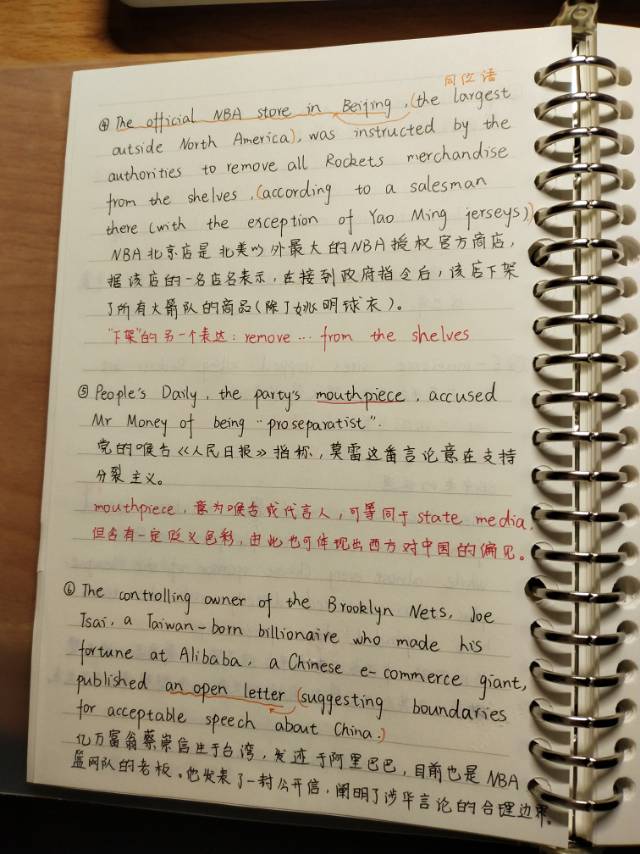 同位语
④ The official NBA store in Beijing, (the largest
outside North America), was instructed by the
authorities to remove all Rockets merchandise
from the shelves, (according to a salesman
there (with the exception of Yao Ming jerseys))
NBA北京店是北美以外最大的NBA授权官方商店,
据该店的一名店名表示,在接到政府指令后,该店下架
了所有火箭队的商品(除了姚明球衣)。
"下架"的另一个表达: remove ... from the shelves
⑤ People's Daily, the party's mouthpiece, accused
Mr Money of being "proseparatist".
党的喉舌《人民日报》指称,莫雷这番言论意在支持
分裂主义。
mouthpiece, 意为喉舌或代言人,可等同于state media,
但含有一定贬义色彩,由此也可体现出西方对中国的偏见。
⑥ The controlling owner of the Brooklyn Nets, Joe
Tsai, a Taiwan-born billionaire who made his
fortune at Alibaba, a Chinese e-commerce giant,
published an open letter (suggesting boundaries
for acceptable speech about China.)
亿万富翁蔡崇信生于台湾,发迹于阿里巴巴,目前也是NBA
篮网队的老板。他发表了一封公开信,阐明了涉华言论的合理边界。